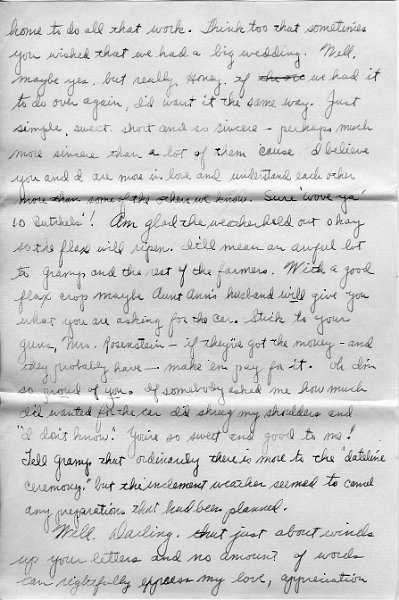 home to do all that work. Think too that sometimes
you wished that we had a big wedding. Well,
maybe yes, but really, Honey, if we had it
to do over again, I'd want it the same way. Just
simple, sweet, short and so sincere - perhaps much
more sincere than a lot of them 'cause I believe
you and I are more in love and understand each other
more than some of the others we know. Sure 'wove ya'
10 Butchers'! Am glad the weather held out okay
so the flax will ripen. It'll mean an awful lot
to gramp and the rest of the farmers. With a good
flax crop maybe Aunt Ann's husband will give you
what you are asking for the car. Stick to your
guns, Mrs. Rosenstein - if they've got the money - and
they probably have - make 'em pay for it. Oh I'm
so proud of you. If somebody asked me how much
I'd wanted for the car I'd shrug my shoulders and
"I don't know". You're so sweet and good to me!
Tell gramp that ordinarily there is more to the "dateline
ceremony" but the inclement weather seemed to cancel
any preparations that had been planned.
Well, Darling, that just about winds
up your letters and no amount of words
can rightfully express my love, appreciation